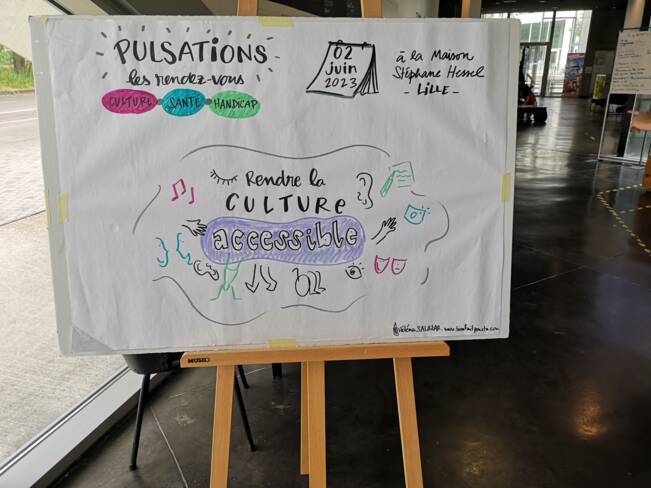 PULSATIONS
les rendez-vous
CULTURE SANTÉ HANDICAP
02
juin
2023
à la Maison
Stéphane Hessel
- LILLE -
Rendre la
CULTURE
accessible
SALAZAR